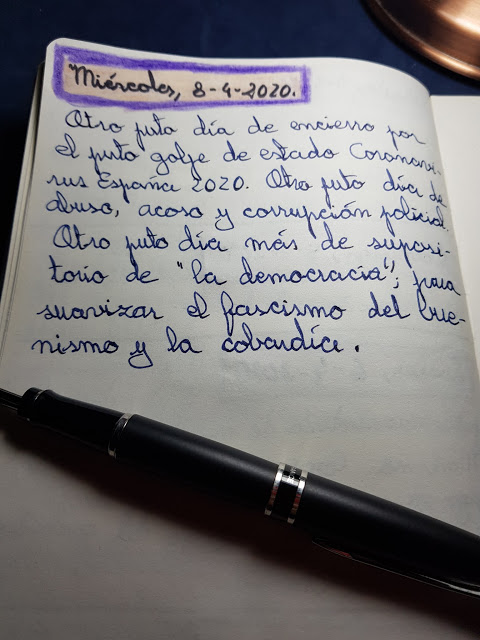 Miércoles, 8-4-2020.
Otro puto día de encierro por
el puto golpe de estado Coronavi-
rus España 2020. Otro puto día de
abuso, acoso y corrupción policial.
Otro puto día más de suposi-
torio de "la democracia"; para
suavizar el fascismo del bue-
nismo y la cobardía.